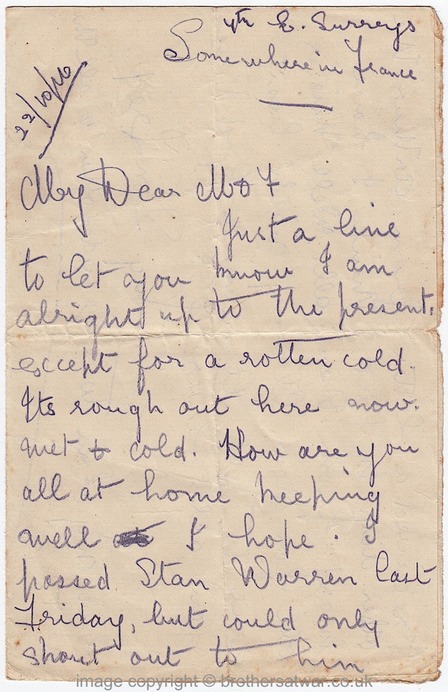 4th E. Surreys
Somewhere in France
22/10/16
My Dear M & F
Just a line
to let you know I am
alright up to the present.
except for a rotten cold.
Its rough out here now.
wet & cold. How are you
all at home keeping
well I hope. I
passed Stan Warren last
Friday, but could only
shout out to him
image copyright © brothersatwar.co.uk